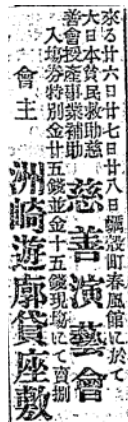 來る廿六日廿七日廿八日蠣殼町春風館に於て
大日本貧民救助慈
善會授産事業補助
慈善演藝會
入塲券特別金廿五錢並金十五錢現塲にて賣捌
會主
洲崎遊廓貸座敷